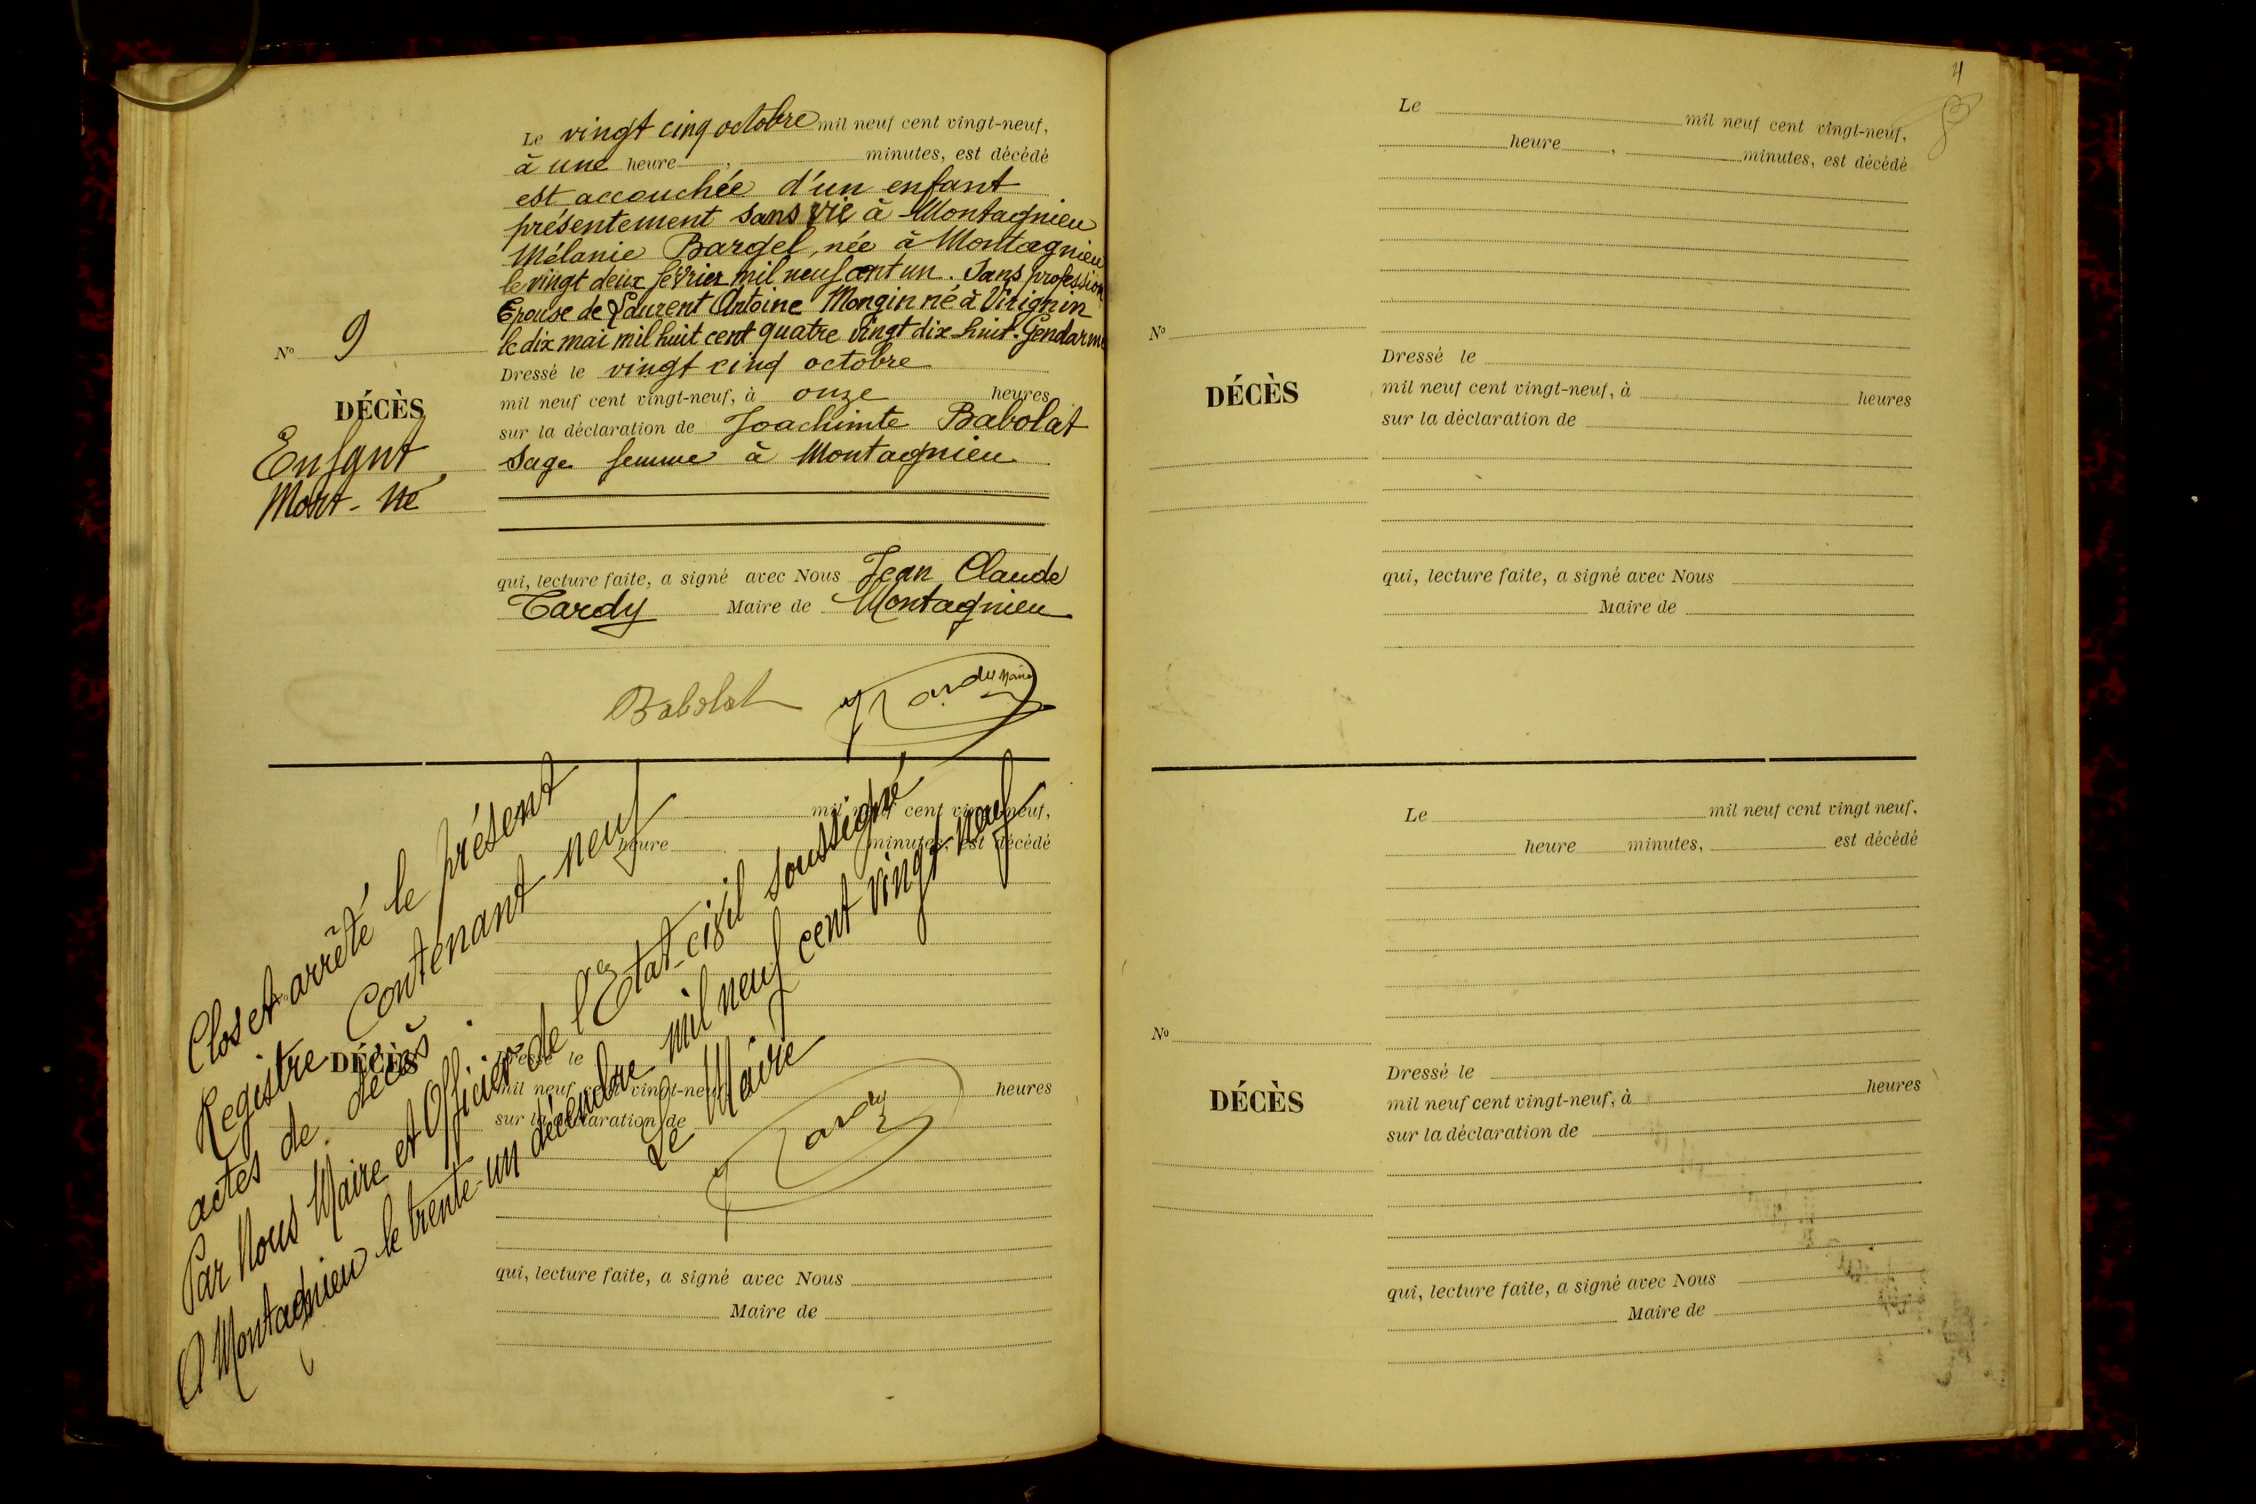 Le vingt cinq octobre mil neuf cent vingt-neuf,
à une heure minutes, est décédé
est accouchée d'un enfant
présentement sans vie à Montagnieu
Mélanie Bargel, née à Montagnieu
le vingt deux février mil neuf cent un. Sans profession
Epouse de Laurent Antoine Mongin né à Virignin
le dix mai mil huit cent quatre vingt dix huit. Gendarme
No 9
Dressé le vingt cinq octobre
mil neuf cent vingt-neuf, à onze heures
DÉCÈS
sur la déclaration de Joachimte Babolat
Enfant
sage femme à Montagnieu
Mort-né
qui, lecture faite, a signé avec Nous Jean Claude
Tardy Maire de Montagnieu
Babolat
Tardy Maire
mil neuf cent vingt-neuf,
heure minutes, est décédé
DÉCÈS
Dressé le
mil neuf cent vingt-neuf heures
sur la déclaration de
qui, lecture faite, a signé avec Nous
Maire de
Clos et arrêté le présent
Registre Contenant neuf
actes de décès.
Par Nous Maire et Officier de l'Etat-civil soussigné
A Montagnieu le trente-un décembre mil neuf cent vingt-neuf
Le Maire
Tardy
4
Le mil neuf cent vingt-neuf,
heure , minutes, est décédé
No
Dressé le
DÉCÈS
mil neuf cent vingt-neuf, à heures
sur la déclaration de
qui, lecture faite, a signé avec Nous
Maire de
Le mil neuf cent vingt neuf,
heure minutes, est décédé
No
Dressé le
DÉCÈS
mil neuf cent vingt-neuf, à heures
sur la déclaration de
qui, lecture faite, a signé avec Nous
Maire de